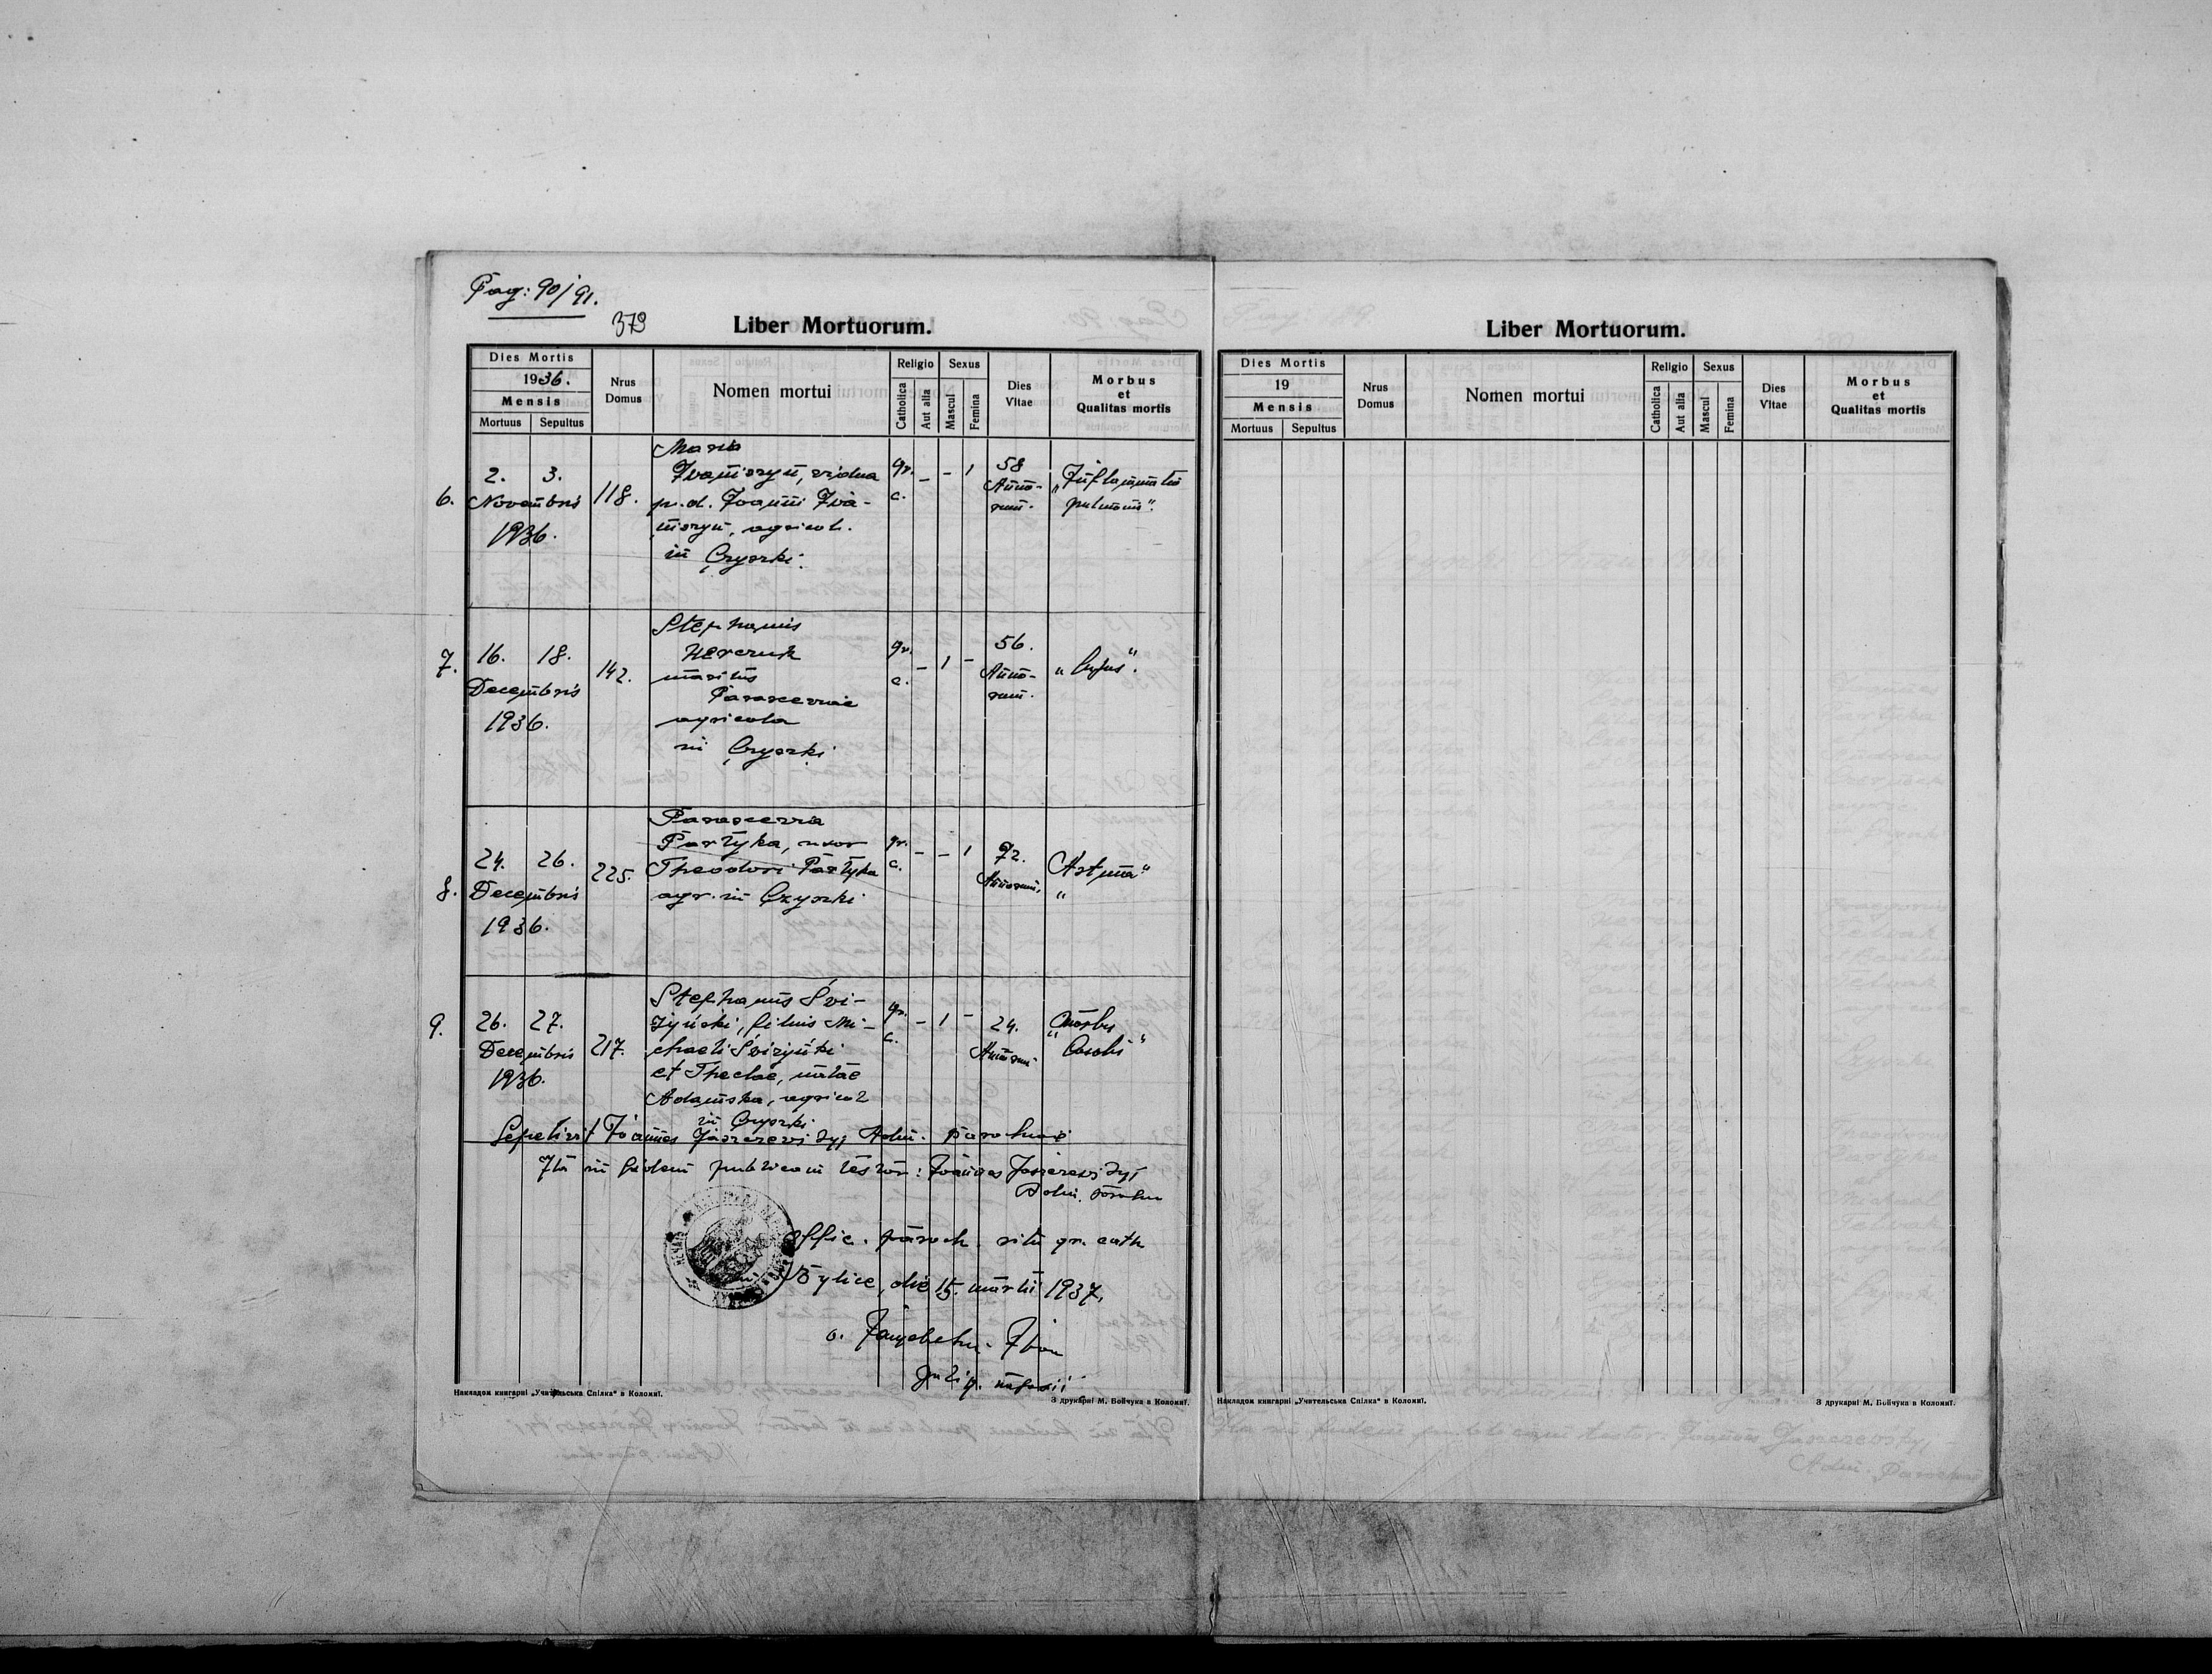 Pag: 90/91.
379
Liber Mortuorum.
Dies Mortis
1936.
Mensis
Mortuus Sepultus
Nrus
Domus
Nomen mortui
Religio
Catholica
Aut alia
Sexus
Mascul
Femina
Dies
Vitae
Morbus
et
Qualitas mortis
6.
2. 3.
Novembris
1936.
118.
Maria
vidua
p. d. Joanni
agricol.
in Czyszki.
gr.
c.
- - 1
58
Anno-
rum.
„Inflammatio
pulmonis".
7.
16. 18.
Decembris
1936.
142.
Stephanus
maritus
Parasceviae
agricola
in Czyszki
gr.
c.
- 1 -
56.
Anno-
rum.
8.
24. 26.
Decembris
1936.
225.
Parascevia
Partyka, uxor
Theodori Partyka
agr. in Czyszki
gr.
c.
- - 1
72.
Annorum.
„Astma"
9.
26. 27.
Decembris
1936.
217.
Stephanus Świ-
żyński, filius Mi-
chaeli Świżyński
et Theclae, natae
Adamska, agricol
in Czyszki
gr.
c.
- 1 -
24.
Annorum.
„Morbus
Sepelivit Joannes Adm. parochus
Ita in fidem publicam testor: Joannes
Adm. parochus
Offic. paroch. ritu gr. cath
Bylice, die 15. martii 1937.
Накладом книгарні „Учительська Спілка" в Коломиї.
З друкарні М. Бойчука в Коломиї.
Liber Mortuorum.
Dies Mortis
19
Mensis
Mortuus Sepultus
Nrus
Domus
Nomen mortui
Religio
Catholica
Aut alia
Sexus
Mascul
Femina
Dies
Vitae
Morbus
et
Qualitas mortis
Накладом книгарні „Учительська Спілка" в Коломиї.
З друкарні М. Бойчука в Коломиї.